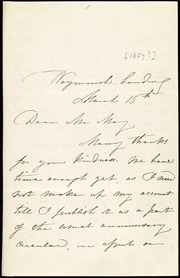 [1857?]
Weymouth, Landing
March 15th
Dear Mr May,
Many thanks
for your kindness. We have
time enough yet, as I need
not make up my account
till I publish it as a part
of the usual anniversary
circular, in april or